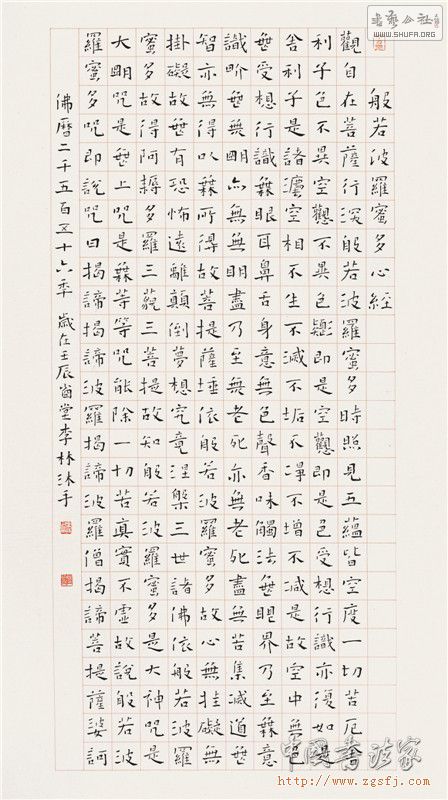 般若波羅蜜多心經
觀自在菩薩行深般若波羅蜜多時照見五蘊皆空度一切苦厄
利子色不異空空不異色色即是空空即是色受想行識亦復如是
舍利子是諸灋空相不生不滅不垢不淨不增不減是故空中無色
無受想行識無眼耳鼻舌身意無色聲香味觸法無眼界乃至無意
識界無無明亦無無明盡乃至無老死亦無老死盡無苦集滅道無
智亦無得以無所得故菩提薩埵依般若波羅蜜多故心無挂礙無
掛礙故無有恐怖遠離顛倒夢想究竟涅槃三世諸佛依般若波羅
蜜多故得阿耨多羅三藐三菩提故知般若波羅蜜多是大神咒是
大明咒是無上咒是無等等咒能除一切苦真實不虛故說般若波
羅蜜多咒即說咒曰揭諦揭諦波羅揭諦波羅僧揭諦菩提薩婆訶
佛曆二千五百五十六年 歲在壬辰堂李林沐手
书法公社
www.SHUFA.ORG
中国书法家
http://www.zgsfj.com